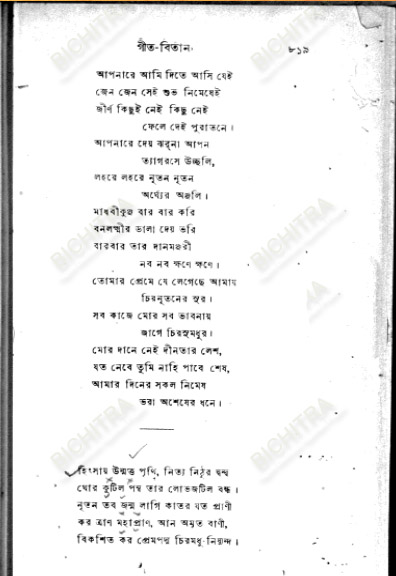 গীত-বিতান
৮১৯
আপনারে আমি দিতে আসি যেই
জেন জেন সেই শুভ নিমেষেই
জীর্ণ কিছুই নেই কিছু নেই
ফেলে দেই পুরাতনে।
আপনারে দেয় ঝরনা আপন
ত্যাগরসে উচ্ছলি,
লহরে লহরে নূতন নূতন
অর্ঘ্যের অঞ্জলি।
মাধবীকুঞ্জ বার বার করি
বনলক্ষ্মীর ডালা দেয় ভরি
বারবার তার দানমঞ্জরী
নব নব ক্ষণে ক্ষণে।
তোমার প্রেমে যে লেগেছে আমায়
চিরনূতনের সুর।
সব কাজে মোর সব ভাবনায়
জাগে চিরসুমধুর।
মোর দানে নেই দীনতার লেশ,
যত নেবে তুমি নাহি পাবে শেষ,
আমার দিনের সকল নিমেষ
ভরা অশেষের ধনে।
হিংসায় উন্মত্ত পৃথ্বি, নিত্য নিঠুর দ্বন্দ্ব
ঘোর কুটিল পন্থ তার লোভজটিল বন্ধ।
নূতন তব জন্ম লাগি কাতর যত প্রাণী
কর ত্রাণ মহাপ্রাণ, আন অমৃত বাণী,
বিকশিত কর প্রেমপদ্ম চিরমধু-নিষ্যন্দ।
BICHITRA
BICHITRA
BICHITRA
BICHITRA
BICHITRA
BICHITRA